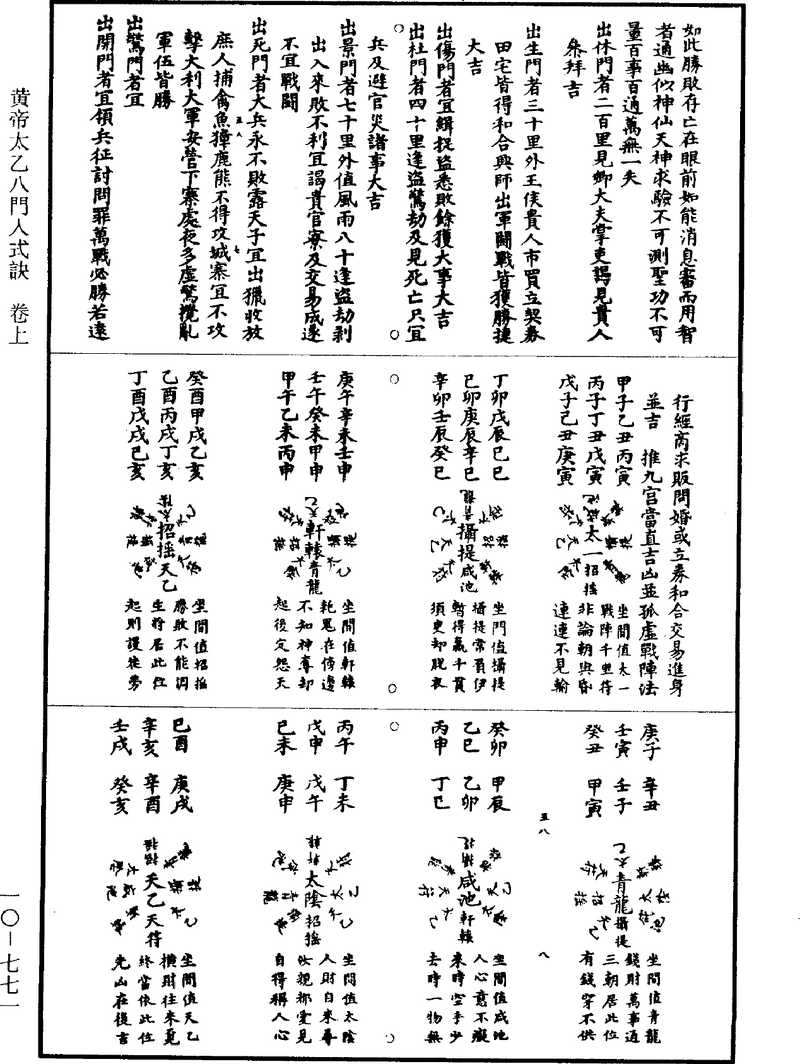 如此勝敗存亡在眼前如能消息審而用智
者通幽似神仙天神求驗不可測聖功不可
量百事百通萬無一失
出休門者二百里見卿大夫掌吏謁見貴人
叅拜吉
出生門者三十里外王侯貴人市買立契券
田宅皆得和合興師出軍鬪戰皆獲勝捷
大吉
出傷門者宜緝捉盜悉敗餘獲大事大吉
出杜門者四十里逢盜驚劫及見死亡只宜
兵及避官災諸事大吉
出景門者七十里外值風雨八十逢盜劫剥
出入來敗不利宜謁貴官寮及交易成遂
不宜戰鬪
出死門者大兵永不敗露天子宜出獵收放
庶人捕禽魚獐鹿熊不得攻城寨宜不攻
擊大利大軍安營下寨處夜多虚驚攪亂
軍伍皆勝
出驚門者宜
出開門者宜領兵征討問罪萬戰必勝若遠
行經商求販問婚或立券和合交易進身
並吉　推九宮當直吉凶並孤虚戰陣法
甲子乙丑丙寅
丙子丁丑戊寅
戊子己丑庚寅
太一招搖
坐間值太一
戰陣千里符
非論朝與昏
連連不見輸
丁卯戊辰己巳
己卯庚辰辛巳
辛卯壬辰癸巳
攝提咸池
坐門值攝提
攝提常負伊
暫得贏千貫
須更却脫衣
庚午辛未壬申
壬午癸未甲申
甲午乙未丙申
軒轅青龍
坐間值軒轅
耗鬼在傍邊
不知神奪却
起後定怨天
癸酉甲戌乙亥
乙酉丙戌丁亥
丁酉戊戌己亥
招搖天乙
坐間值招搖
勝敗不能調
生將居此位
起則護徒勞
庚子　辛丑
壬寅　壬子
癸丑　甲寅
青龍攝提
坐間值青龍
錢財萬事通
三朝居此位
有錢穿不供
癸卯　甲辰
乙巳　乙卯
丙申　丁巳
咸池軒轅
坐間值咸池
人心意不癡
來時空手少
去時一物無
丙午　丁未
戊申　戊午
己未　庚申
太陰招搖
坐間值太陰
人財自來尋
父親都愛見
自得稱人心
己酉　庚戌
辛亥　辛酉
壬戌　癸亥
天乙天符
坐間值天乙
橫財往來覓
終當依此位
先凶在後吉
黄帝太乙八門入式訣　卷上
一〇—七七一